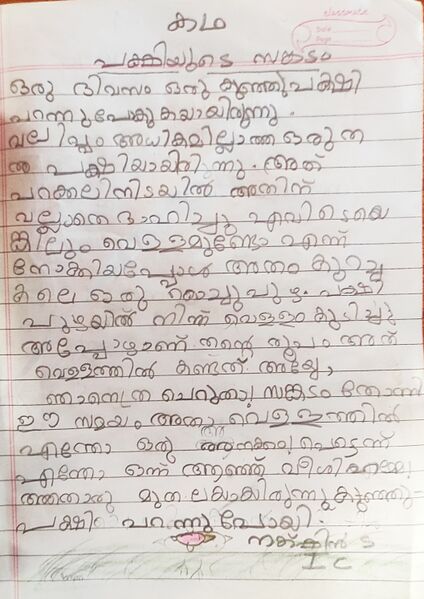 classmate
Date
Page
കഥ
പക്ഷിയുടെ സങ്കടം
ഒരു ദിവസം ഒരു കുഞ്ഞുപക്ഷി
പറന്നുപോകുകയായിരുന്നു.
വലിപ്പം അധികമില്ലാത്ത ഒരു ത
ത്ത പക്ഷിയായിരുന്നു. അത്
പറക്കലിനിടയിൽ അതിന്
വല്ലാതെ ദാഹിച്ചു എവിടെയെ
ങ്കിലും വെള്ളമുണ്ടോ എന്ന്
നോക്കിയപ്പോൾ അതാ കുറച്ച
കലെ ഒരു കൊച്ചുപുഴ. പക്ഷി
പുഴയിൽ നിന്ന് വെള്ളം കുടിച്ചു
അപ്പോഴാണ് തന്റെ രൂപം അത്
വെള്ളത്തിൽ കണ്ടത് അയ്യേ,
ഞാനെത്ര ചെറുതാ! സങ്കടം തോന്നി
ഈ സമയം അതാ വെള്ളത്തിൽ
എന്തോ ഒരു അനക്കം! പെട്ടെന്ന്
എന്തോ ഒന്ന് ആഞ്ഞ് വീശി
മുതലയായിരുന്നു കുഞ്ഞു-
പക്ഷി പറന്നു പോയി.
I C